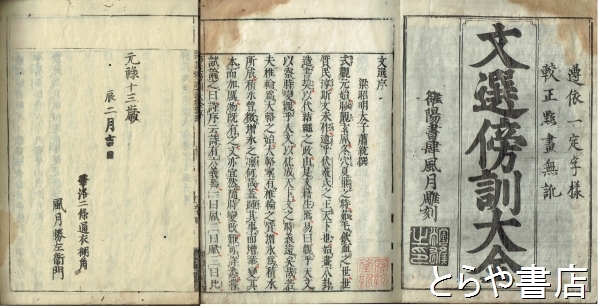 憑依一定字樣
較正點畫無訛
文選傍訓大全
雒陽書肆風月雕刻
文選序
梁昭明太子蕭統撰
式觀元始眇覿玄風冬穴夏巢之時茹毛飲血之世世
質民淳斯文未作逮乎伏羲氏之王天下也始畫八卦
造書契以代結繩之政由是文籍生焉易曰觀乎天文
以察時變觀乎人文以化成天下文之時義遠矣哉若
夫椎輪為大輅之始大輅寧有椎輪之質增冰為積水
所成積水曾微增冰之凛何哉蓋踵其事而增華變其
本而加厲物既有之文亦宜然隨時變改難可詳悉嘗
試論之曰詩序云詩有六義焉一曰風二曰賦三曰比
元禄十三歳
辰二月吉日
二條通衣棚角
風月勝左衞門
とらや書店